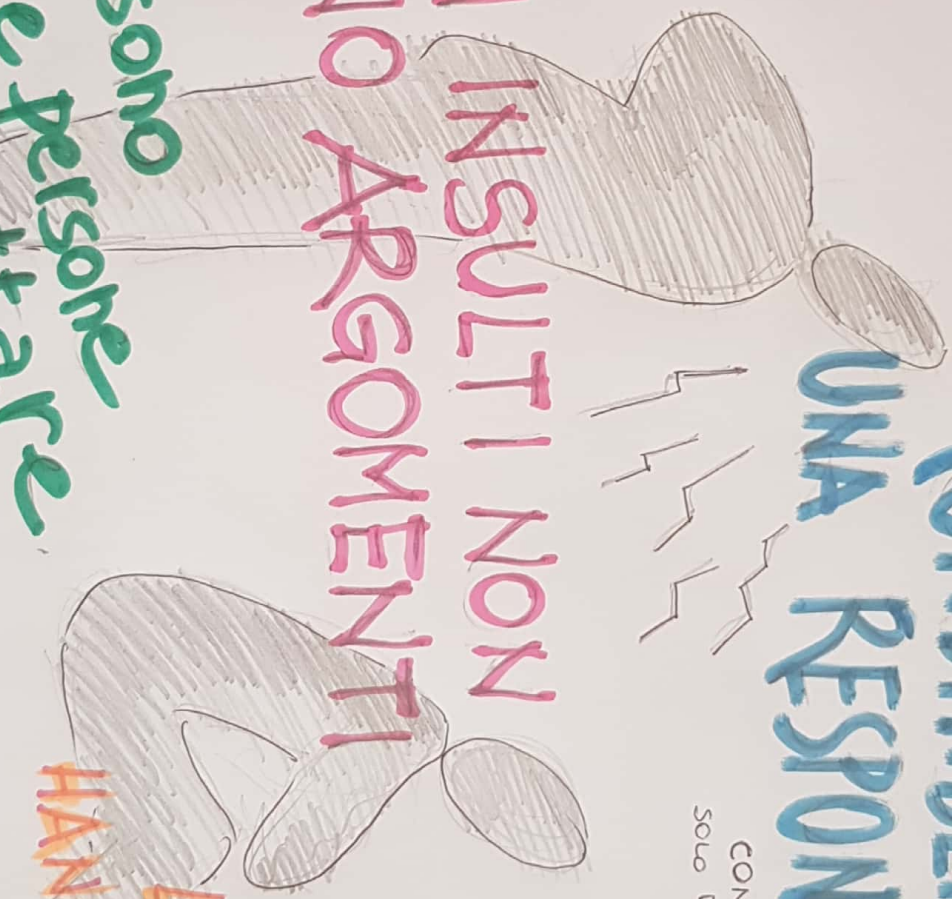 UNA RESPON
CON
SOLO
INSULTI NON
NO ARGOMENTI
sono
e persone
ttare
HAN